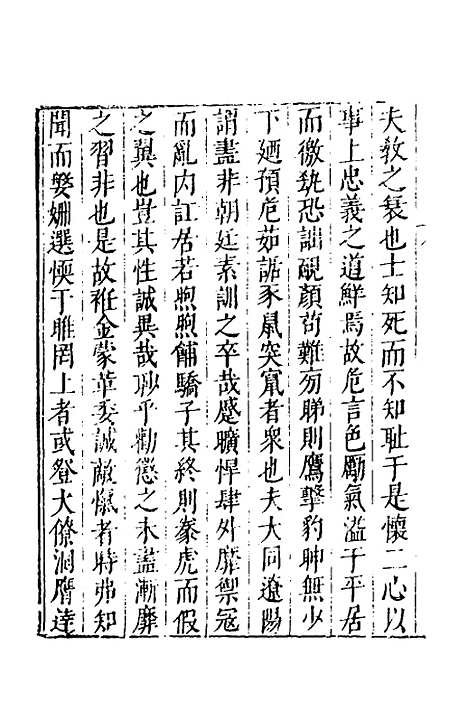 夫教之衰也士知死而不知耻于是懷二心以
事上忠義之道鮮焉故危言色勵氣溢于平居
而徼𫝑恐詘硯顏茍難歹睇則鷹擊豹呻無少
下廼預危茹詬豕鼠突竄者衆也夫大同遼陽
謂盡非朝廷素訓之卒哉蹙曠悍肆外靡禦冦
而亂内訌居若煦煦餔驕子其終則豢虎而假
之翼也豈其性誠異哉眇乎勸懲之未盡漸靡
之習非也是故衽金蒙革委誠敵愾者時弗知
聞而嫛姍選愞丁睢罔上者或登大僚洞膺達